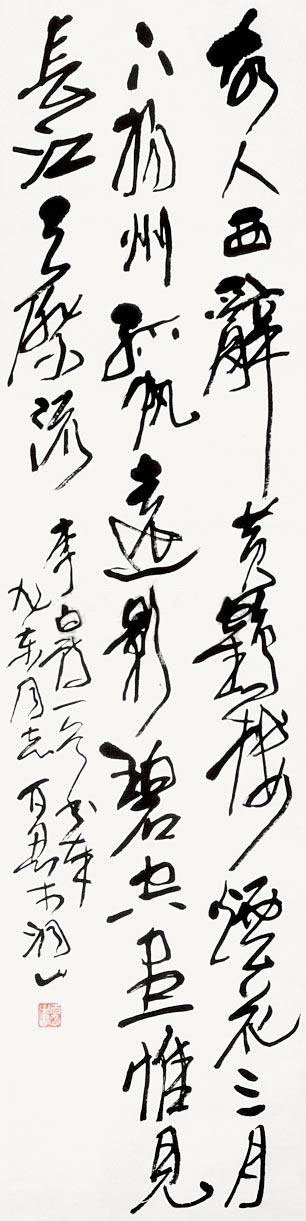 故人西辭黄鶴樓煙花三月
下揚州孤帆遠影碧空盡惟見
長江天際流
李白詩一首書奉
東同志